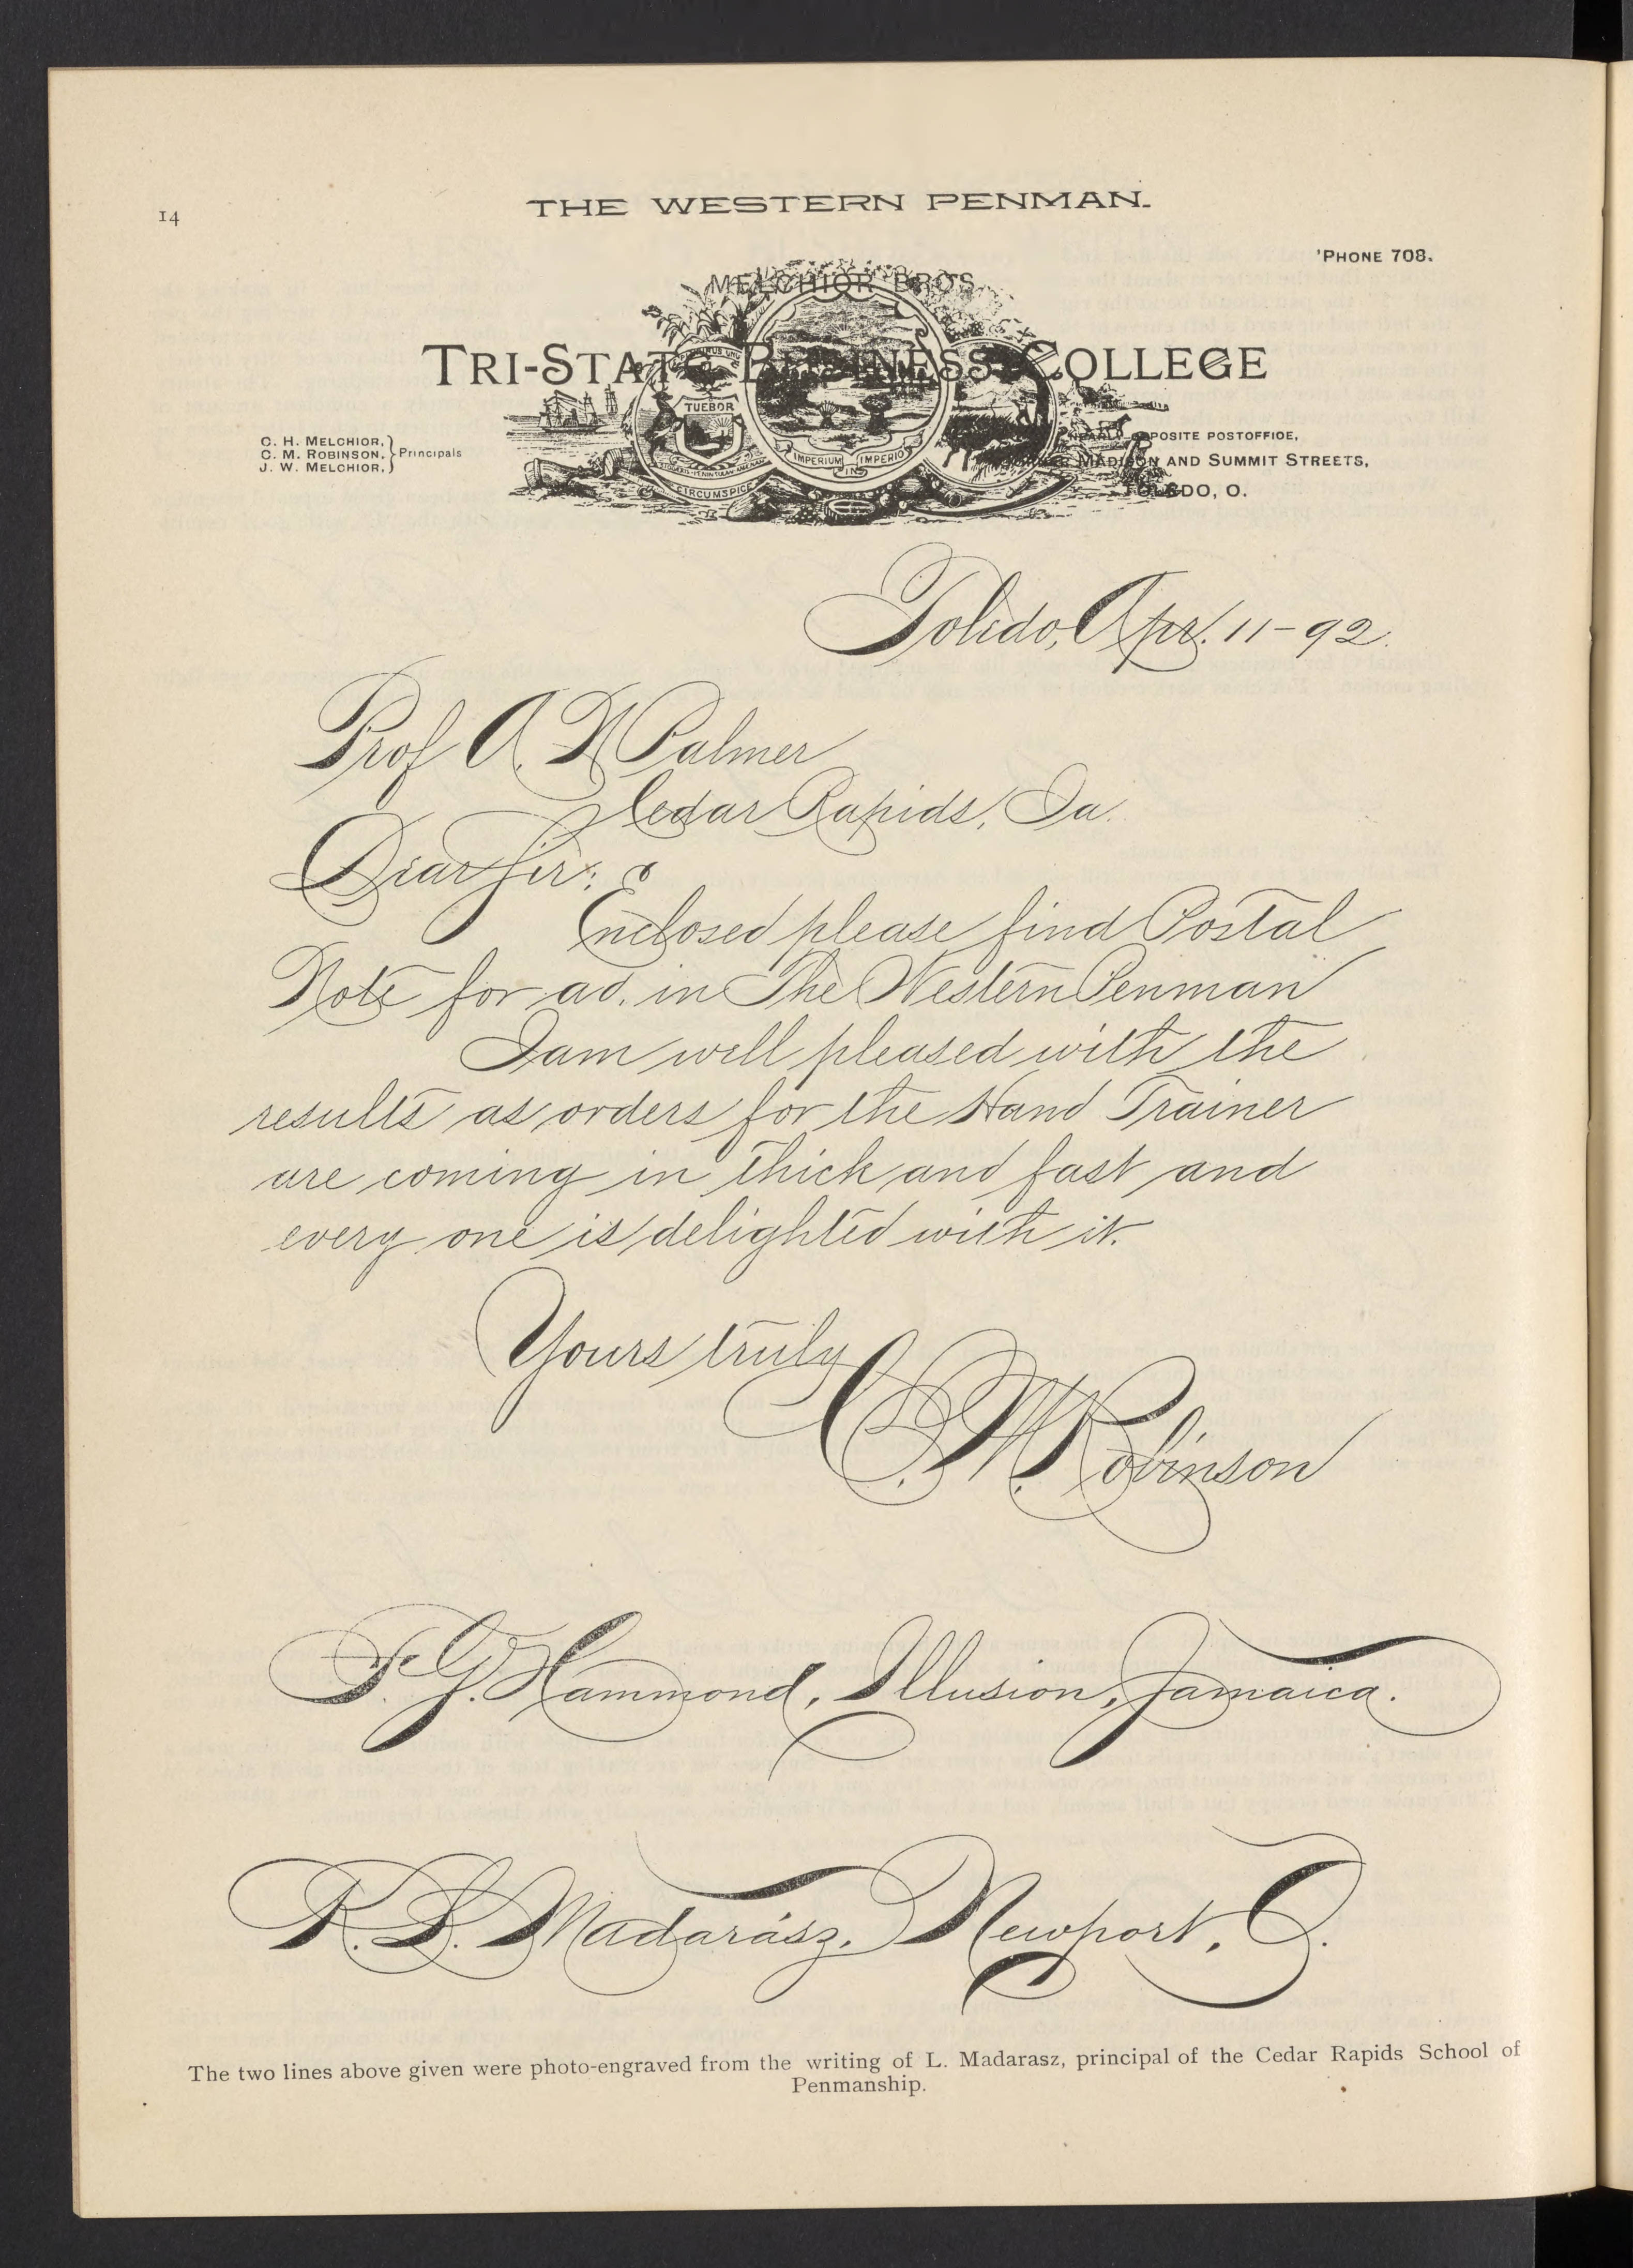 14
THE WESTERN PENMAN.
'PHONE 708.
MELCHIOR BROS
TRI-STATE BUSINESS COLLEGE
TUEBOR
CIRCUMSPICE
IMPERIUM IN IMPERIO
C. H. MELCHIOR,
C. M. ROBINSON, } Principals
J. W. MELCHIOR,
OPPOSITE POSTOFFICE,
MADISON AND SUMMIT STREETS,
TOLEDO, O.
Toledo, Apr. 11-92.
Prof A. N Palmer
Cedar Rapids, Ia.
Dear Sir:
Enclosed please find Postal
Note for ad. in The Western Penman
I am well pleased with the
results as orders for the Hand Trainer
are coming in thick and fast and
every one is delighted with it.
Yours truly
C. M. Robinson
F. G. Hammond, Illusion, Jamaica.
R. L. Madarász, Newport, O.
The two lines above given were photo-engraved from the writing of L. Madarasz, principal of the Cedar Rapids School of
Penmanship.